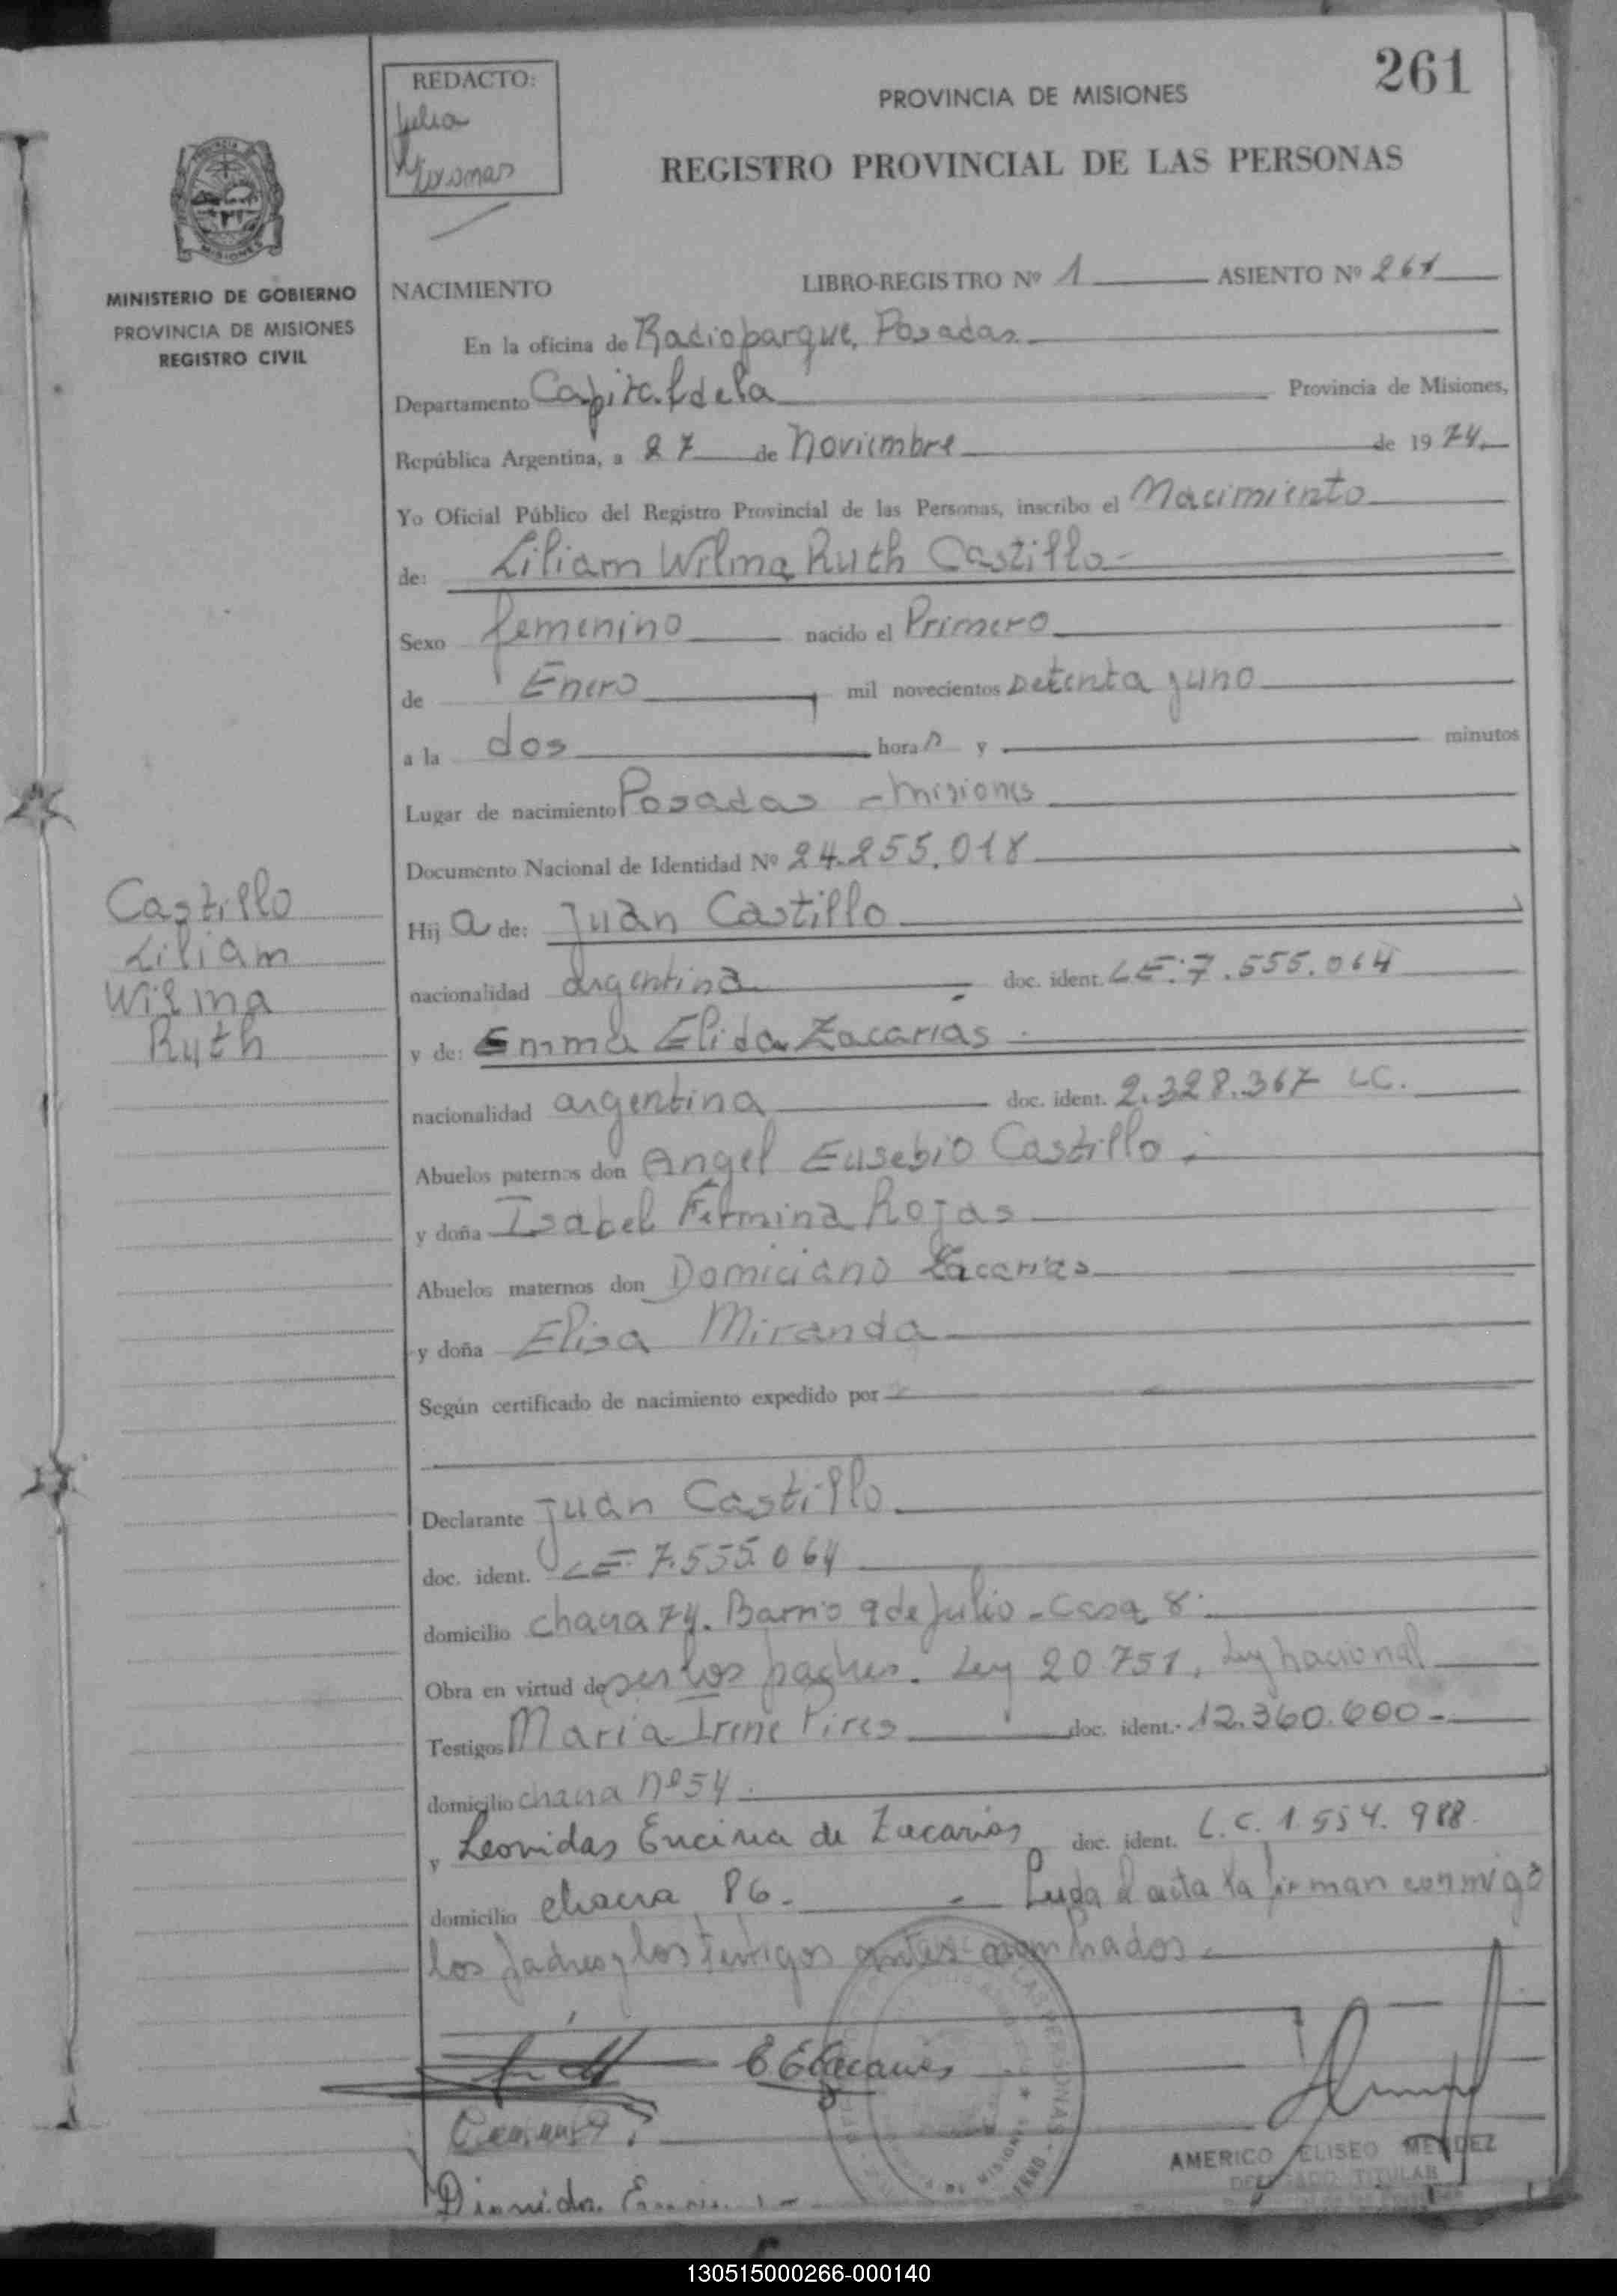 261
REDACTO:
Julia
PROVINCIA DE MISIONES
REGISTRO PROVINCIAL DE LAS PERSONAS
MISIONES
MINISTERIO DE GOBIERNO
PROVINCIA DE MISIONES
REGISTRO CIVIL
NACIMIENTO LIBRO-REGISTRO Nº 1 ASIENTO Nº 261
En la oficina de Radioparque, Posadas
Departamento Capital de la Provincia de Misiones,
República Argentina, a 27 de Noviembre de 1974
Yo Oficial Público del Registro Provincial de las Personas, inscribo el Nacimiento
de: Liliam Wilma Ruth Castillo
Sexo femenino nacido el Primero
de Enero mil novecientos setenta y uno
a la dos horas y minutos
Lugar de nacimiento Posadas - Misiones
Documento Nacional de Identidad Nº 24.255.018
Castillo
Liliam
Wilma
Ruth
Hija de: Juan Castillo
nacionalidad argentina doc. ident. LE: 7.555.064
y de: Emma Elida Zacarias
nacionalidad argentina doc. ident. 2.328.367 LC.
Abuelos paternos don Angel Eusebio Castillo
y doña Isabel Fermina Rojas
Abuelos maternos don Domiciano Zacarias
y doña Elisa Miranda
Según certificado de nacimiento expedido por
Declarante Juan Castillo
doc. ident. LE 7.555.064
domicilio chacra 74. Barrio 9 de Julio - Casa 8
Obra en virtud de ser los padres. Ley 20751, Ley nacional
Testigos Maria Irene Pires doc. ident. 12.360.600-
domicilio chacra Nº 54
y Leonidas Encina de Zacarias doc. ident. L.C. 1.554.988
domicilio chacra 86. - Leida el acta la firman conmigo
los padres y los testigos antes nombrados
E E Zacarias
AMERICO ELISEO MENDEZ
DELEGADO TITULAR
130515000266-000140